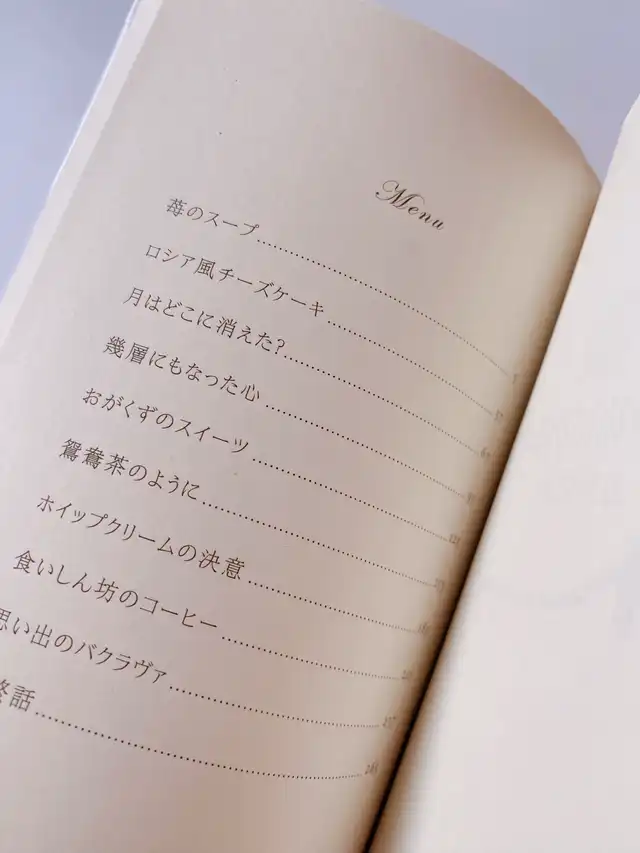 Menu
苺のスープ
ロシア風チーズケーキ
月はどこに消えた?
幾層にもなった心
おがくずのスイーツ
鴛鴦茶のように
ホイップクリームの決意
食いしん坊のコーヒー
思い出のバクラヴァ
終話